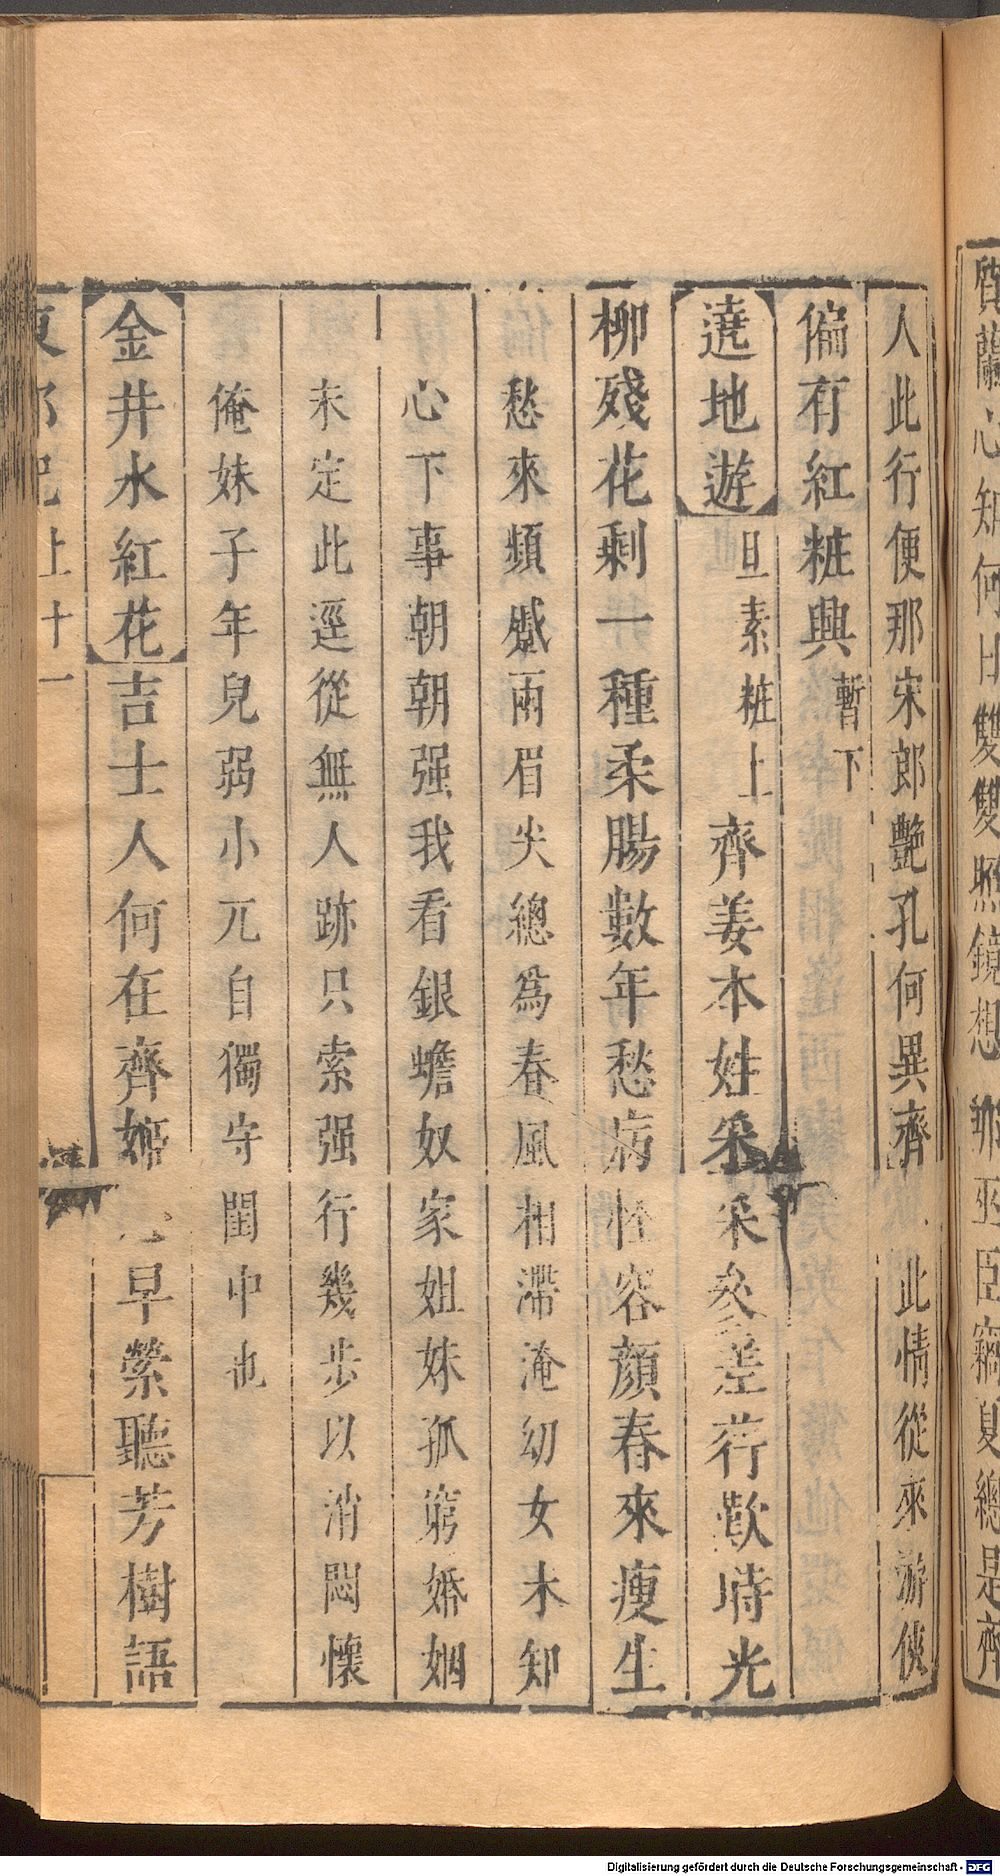 質蘭心知何日雙雙照鏡想 那巫臣竊夏總是齊
人此行便那宋郎艶孔何異齊 此情從來游俠
偏有紅粧興 暫下
遶地遊 旦素粧上 齊姜本姓采采參差荇歎時光
柳殘花剩一種柔腸數年愁病怪容顔春來瘦生
愁來頻蹙兩眉尖總爲春風相滯淹幼女未知
心下事朝朝强我看銀蟾奴家姐妹孤窮婚姻
未定此逕從無人跡只索强行幾步以消悶懷
俺妹子年兒弱小兀自獨守閨中也
金井水紅花 吉士人何在齊姬 早縈聽芳樹語
東郭記上十一
Digitalisierung gefördert durch die Deutsche Forschungsgemeinschaft - DFG